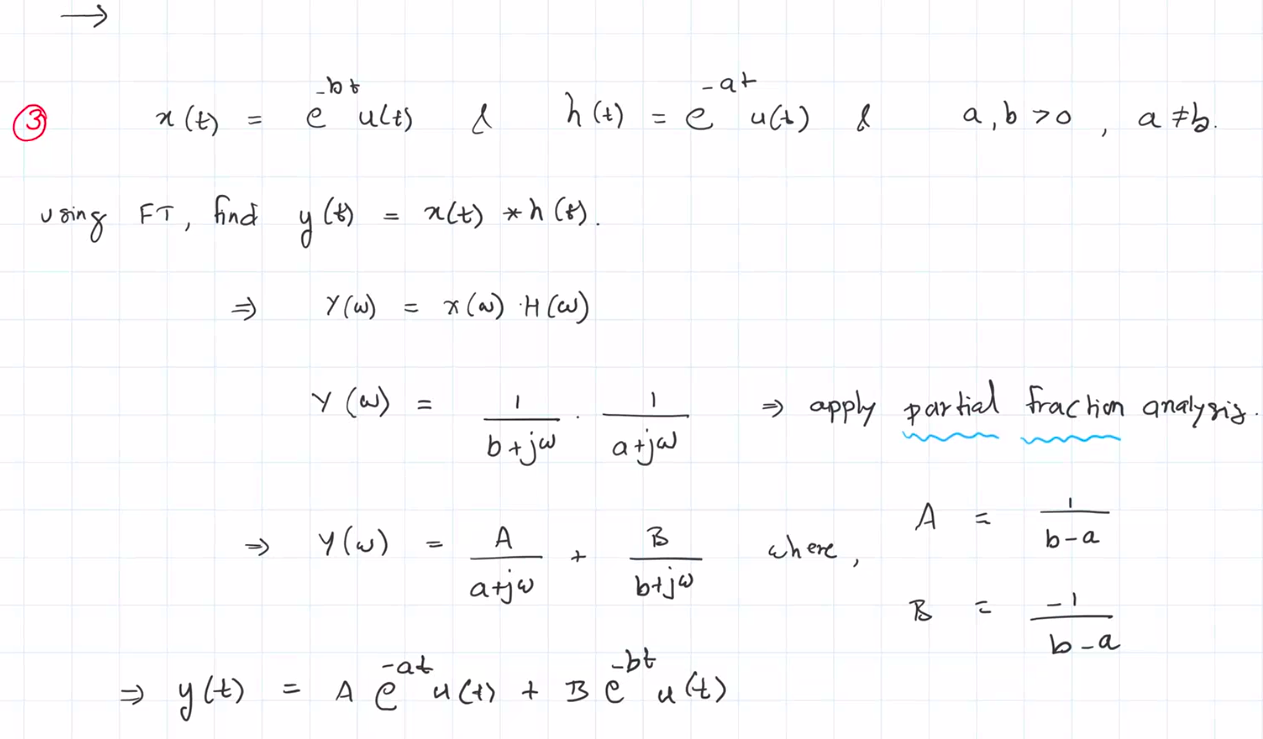 →
③ x(t) = e^{-bt} u(t) & h(t) = e^{-at} u(t) & a, b > 0, a ≠ b.
using FT, find y(t) = x(t) * h(t).
⇒ Y(ω) = X(ω) · H(ω)
Y(ω) = 1/(b+jω) · 1/(a+jω) ⇒ apply partial fraction analysis.
⇒ Y(ω) = A/(a+jω) + B/(b+jω) where, A = 1/(b-a)
B = -1/(b-a)
⇒ y(t) = A e^{-at} u(t) + B e^{-bt} u(t)